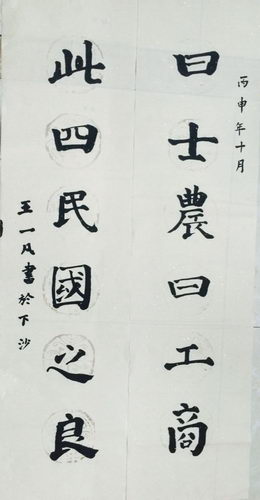 丙申年十月
曰士農曰工商
此四民國之良
王一凡書於下沙